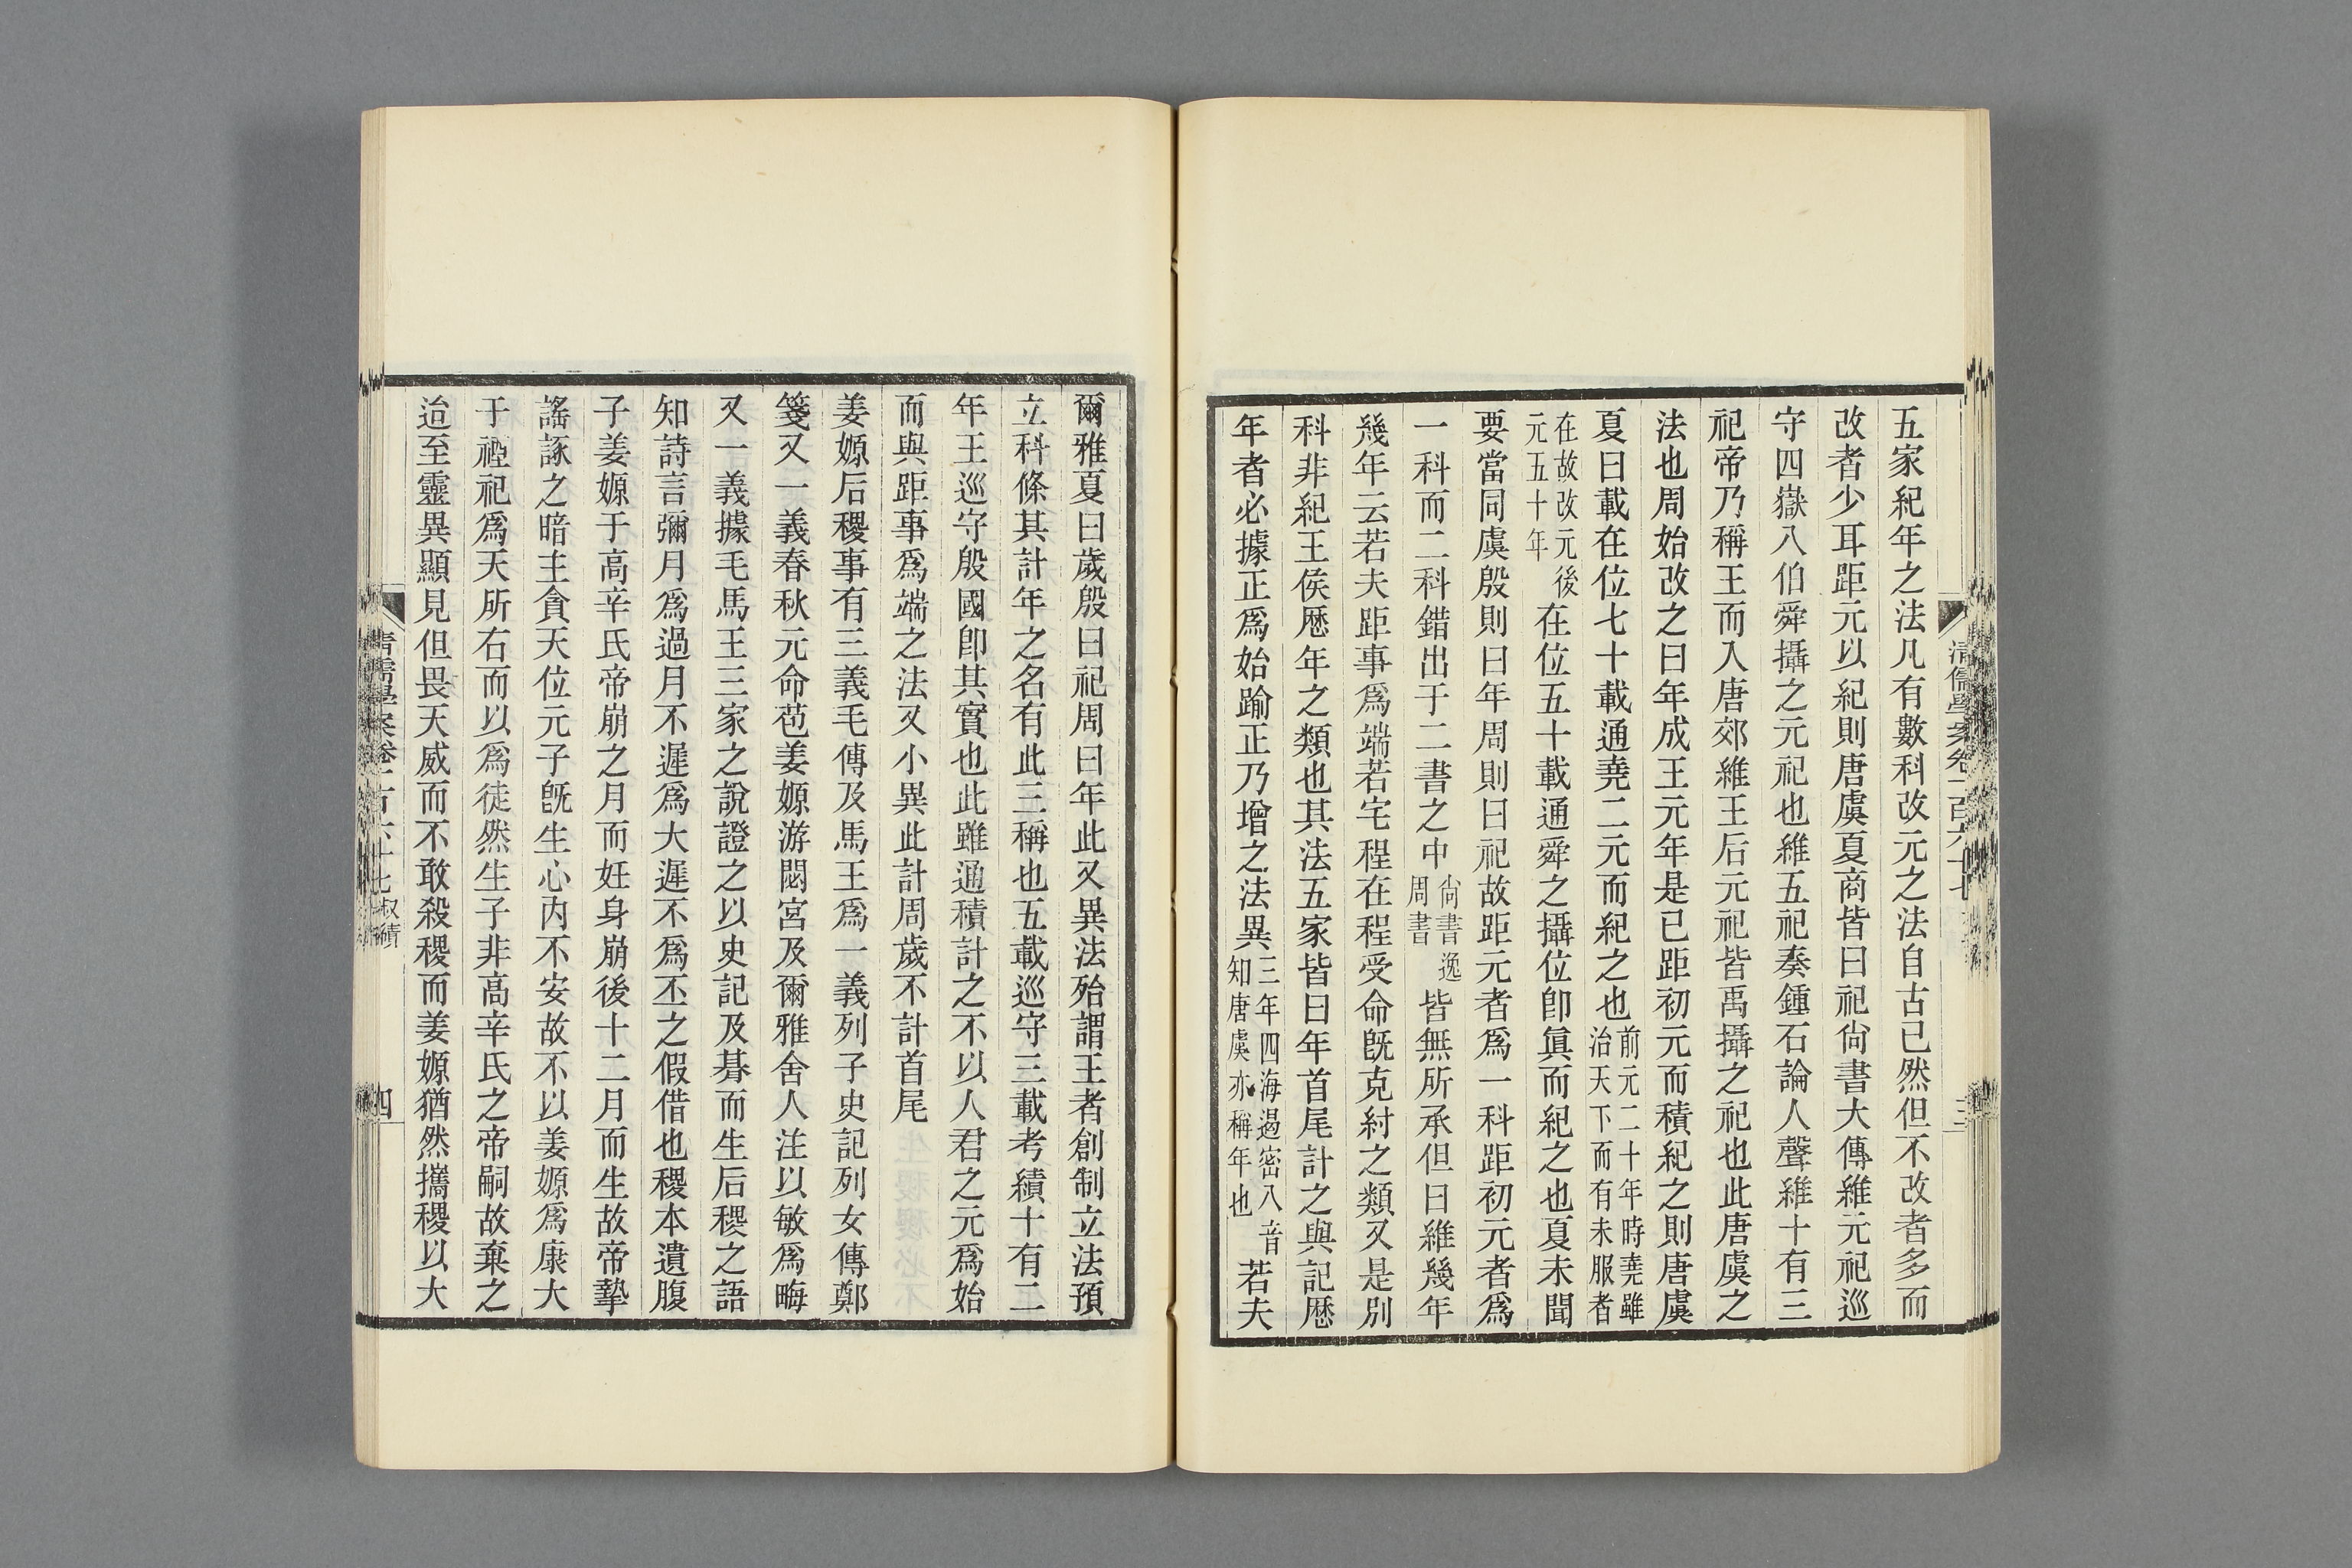 五家紀年之法凡有數科改元之法自古已然但不改者多而
改者少耳距元以紀則唐虞夏商皆曰祀尙書大傳維元祀巡
守四嶽八伯舜攝之元祀也維五祀奏鍾石論人聲維十有三
祀帝乃稱王而入唐郊維王后元祀皆禹攝之祀也此唐虞之
法也周始改之曰年成王元年是已距初元而積紀之則唐虞
夏曰載在位七十載通堯二元而紀之也前元二十年時堯雖治天下而有未服者
在故改元後元五十年在位五十載通舜之攝位卽眞而紀之也夏未聞
要當同虞殷則曰年周則曰祀故距元者爲一科距初元者爲
一科而二科錯出于二書之中尙書逸周書皆無所承但曰維幾年
幾年云若夫距事爲端若宅程在程受命旣克紂之類又是別
科非紀王侯歷年之類也其法五家皆曰年首尾計之與記歷
年者必據正爲始踰正乃增之法異三年四海遏密八音知唐虞亦稱年也若夫
清儒學案卷二百六十七
三
爾雅夏曰歲殷曰祀周曰年此又異法殆謂王者創制立法預
立科條其計年之名有此三稱也五載巡守三載考績十有二
年王巡守殷國卽其實也此雖通積計之不以人君之元爲始
而與距事爲端之法又小異此計周歲不計首尾
姜嫄后稷事有三義毛傳及馬王爲一義列子史記列女傳鄭
箋又一義春秋元命苞姜嫄游閟宮及爾雅舍人注以敏爲畮
又一義據毛馬王三家之說證之以史記及朞而生后稷之語
知詩言彌月爲過月不遲爲大遲不爲丕之假借也稷本遺腹
子姜嫄于高辛氏帝崩之月而妊身崩後十二月而生故帝摯
謠諑之暗主貪天位元子旣生心內不安故不以姜嫄爲康大
于禋祀爲天所右而以爲徒然生子非高辛氏之帝嗣故棄之
迨至靈異顯見但畏天威而不敢殺稷而姜嫄猶然攜稷以大
四